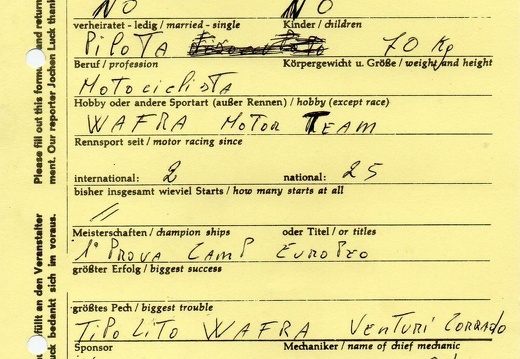 NO NO
verheiratet - ledig / married - single Kinder / children
PiLOTA 70 Kg
Beruf / profession Körpergewicht u. Größe / weight and height
MOTOCICLISTA
Hobby oder andere Sportart (außer Rennen) / hobby (except race)
WAFRA MOTOR TEAM
Rennsport seit / motor racing since
international: 2 national: 25
bisher insgesamt wieviel Starts / how many starts at all
//
Meisterschaften / champion ships oder Titel / or titles
1ª PROVA CAMP EUROPEO
größter Erfolg / biggest success
größtes Pech / biggest trouble
TIPO LITO WAFRA VENTURI CORRADO
Sponsor Mechaniker / name of chief mechanic
Please fill out this form and return
ment. Our reporter Jochen Luck thank
füllt an den Veranstalter
uck bedankt sich im voraus.